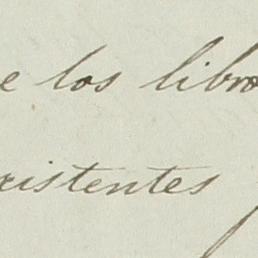 e los libro
xistentes